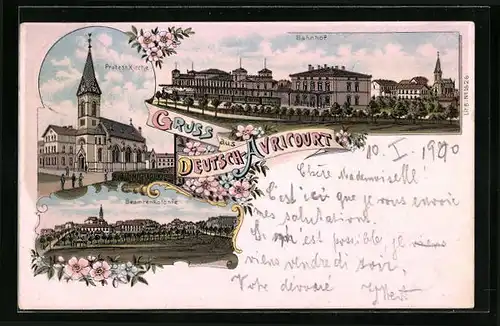 Bahnhof
Protest. Kirche
Gruss
aus
Deutsch-Avricourt
Beamtenkolonie
10. I. 1900
Chère Mademoiselle!
C'est ici que je vous envoie
mes salutations.
Si c'est possible, je
viens vendredi soir.
Votre dévoué